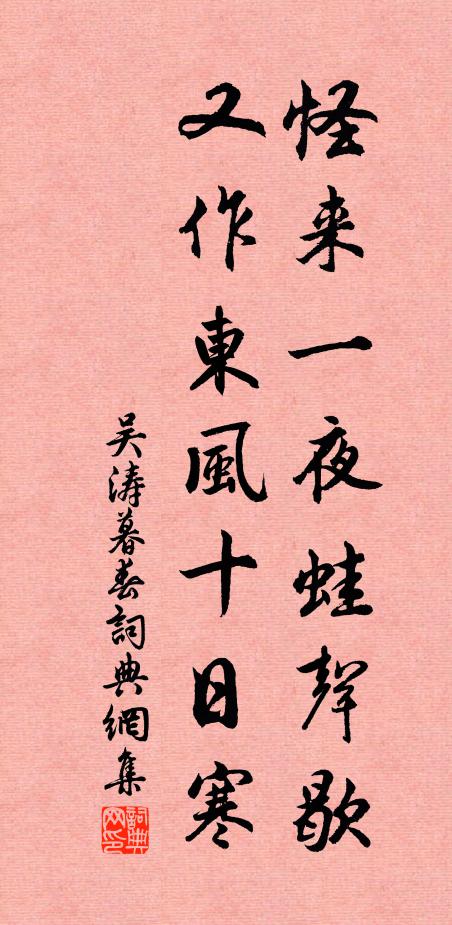 怪来一夜蛙聲歇
又作東風十日寒
吴涛暮春詞典網集
詞典网印